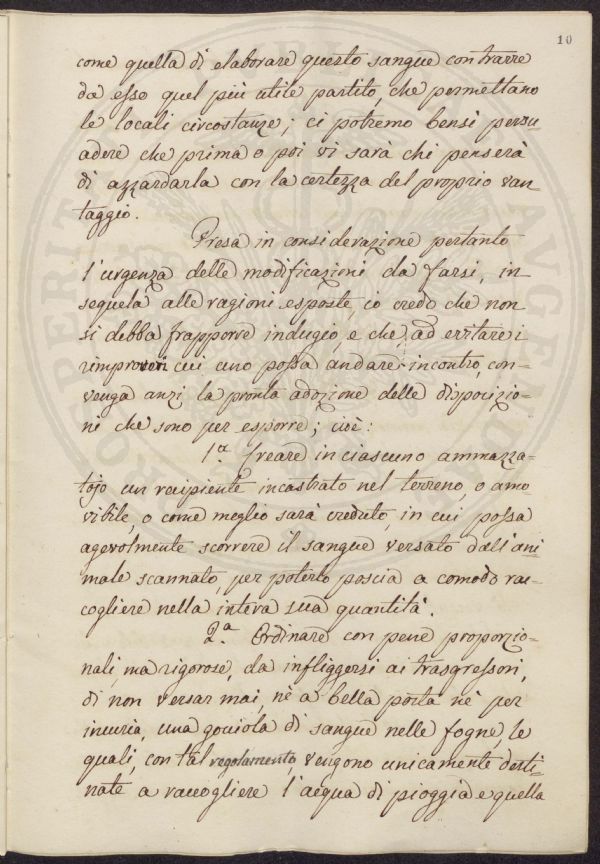 10
come quella di elaborare questo sangue con trarre
da esso quel più utile partito, che permettano
le locali circostanze; ci potremo bensì persu-
adere che prima o poi vi sarà chi penserà
di azzardarla con la certezza del proprio van
taggio.
Presa in considerazione pertanto
l'urgenza delle modificazioni da farsi, in
sequela alle ragioni esposte, io credo che non
si debba frapporre indugio, e che, ad evitare i
rimproveri cui uno possa andare incontro, con-
venga anzi la pronta adozione delle disposizio-
ni che sono per esporre; cioè:
1.a Creare in ciascuno ammazza-
tojo un recipiente incastrato nel terreno, o amo
vibile, o come meglio sarà creduto, in cui possa
agevolmente scorrere il sangue versato dall'ani
male scannato, per poterlo poscia a comodo rac-
cogliere nella intera sua quantità.
2.a Ordinare con pene proporzio-
nali ma rigorose, da infliggersi ai trasgressori,
di non versar mai, nè a bella posta nè per
incuria, una gociola di sangue nelle fogne, le
quali, con tal regolamento, vengono unicamente desti-
nate a raccogliere l'acqua di pioggia e quella